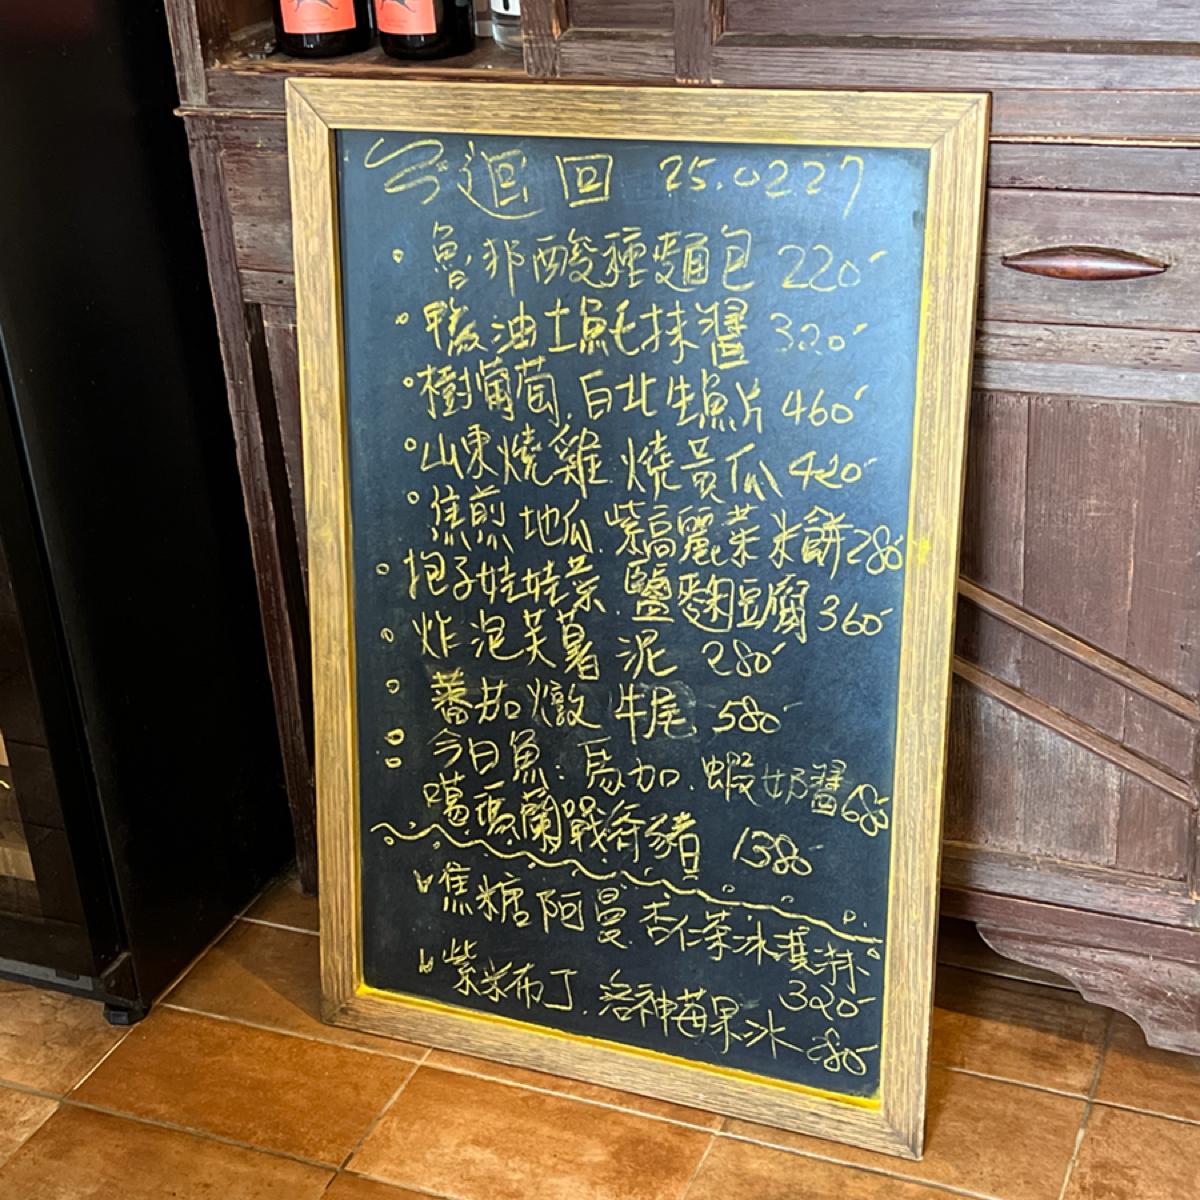 迴 回 25.0227
魯邦酸種麵包 220
鴨油土魠抹醬 320
樹葡萄.白北生魚片 460
山東燒雞.燒黃瓜 420
焦煎地瓜.紫高麗菜米餅 280
抱子娃娃菜.鹽麴豆腐 360
炸泡芙薯泥 280
蕃茄燉牛尾 580
今日魚:馬加.蝦奶醬 680
噶瑪蘭戰斧豬 1380
焦糖阿曼.杏仁茶冰淇淋
320
紫米布丁.洛神莓果冰 280